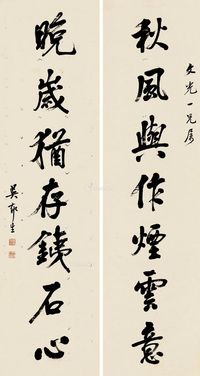 文光一兄属
秋風與作煙雲意
晚歲猶存鐵石心
吴郁生